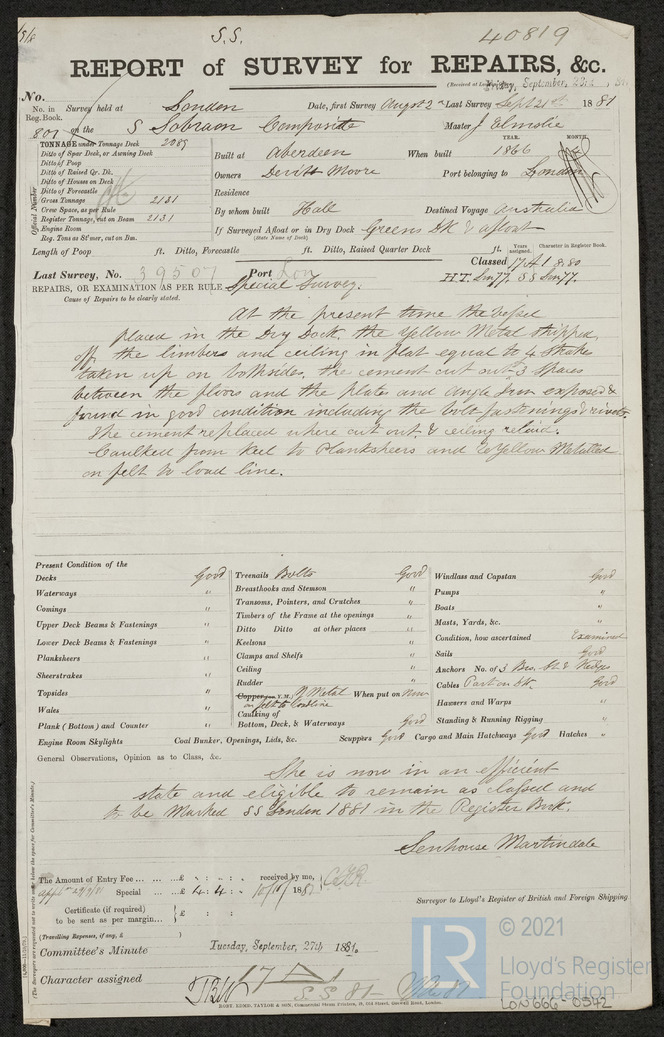 S.S.
40819
REPORT of SURVEY for REPAIRS, &c.
(Received at London Friday, September, 23rd
No.
No. in Reg. Book. Survey held at London Date, first Survey August 2nd Last Survey Sept 21st 1881
801 on the S Sobraon Composite Master J Elmslie
TONNAGE under Tonnage Deck 2089
Ditto of Spar Deck, or Awning Deck
Ditto of Poop
Ditto of Raised Qr. Dk.
Ditto of House on Deck
Ditto of Forecastle
Gross Tonnage 2131
Crew Space, as per Rule
Register Tonnage, cut on Beam 2131
Engine Room
Reg. Tons as St'mer, cut on Bm.
Official Number
Built at Aberdeen When built YEAR. 1866 MONTH.
Owners Devitt Moore Port belonging to London
Residence
By whom built Hall Destined Voyage Australia
If Surveyed Afloat or in Dry Dock Greens DK & afloat
(State Name of Dock)
Length of Poop ft. Ditto, Forecastle ft. Ditto, Raised Quarter Deck ft. Years assigned. Character in Register Book.
Last Survey, No. 39507 Port Lon Classed 17 A1 8.80
H.T. Lon 77. SS Lon 77.
REPAIRS, OR EXAMINATION AS PER RULE Special Survey.
Cause of Repairs to be clearly stated.
At the present time the vessel
placed in the Dry Dock. the Yellow Metal stripped
off the limbers and ceiling in flat equal to 4 Strakes
taken up on bothsides. the cement cut out 3 Spaces
between the floors and the plates and angle Iron exposed &
found in good condition including the bolt fastenings & rivets.
The cement replaced where cut out. & ceiling relaid.
Caulked from keel to Planksheers and Yellow Metalled
on felt to load line.
Present Condition of the
Decks Good
Waterways "
Comings "
Upper Deck Beams & Fastenings "
Lower Deck Beams & Fastenings "
Planksheers "
Sheerstrakes "
Topsides "
Wales "
Plank (Bottom) and Counter "
Treenails Bolts Good
Breasthooks and Stemson "
Transoms, Pointers, and Crutches "
Timbers of the Frame at the openings "
Ditto Ditto at other places "
Keelsons "
Clamps and Shelfs "
Ceiling "
Rudder "
Copper or Y.M. Y Metal When put on Now
on felt to loadline
Caulking of Bottom, Deck, & Waterways Good
Windlass and Capstan Good
Pumps "
Boats "
Masts, Yards, &c. "
Condition, how ascertained Examined
Sails Good
Anchors No. of 3 Bow, St. & Kedges
Cables Part on DK. Good
Hawsers and Warps "
Standing & Running Rigging "
Engine Room Skylights Coal Bunker, Openings, Lids, &c. Scuppers Good Cargo and Main Hatchways Good Hatches "
General Observations, Opinion as to Class, &c.
She is now in an efficient
state and eligible to remain as classed and
to be Marked SS London 1881 in the Register Book.
Senhouse Martindale
Surveyor to Lloyd's Register of British and Foreign Shipping
The Amount of Entry Fee ... £ " : " : " received by me,
Special ... £ 4 : 4 : " 1881
Certificate (if required) to be sent as per margin... £ : :
(Travelling Expenses, if any, £ )
Committee's Minute Tuesday, September, 27th 1881.
Character assigned 17 A 1
S.S. 81
ROBT. EDMD. TAYLOR & SON, Commercial Steam Printers, 19, Old Street, Goswell Road, London.
© 2021
Lloyd's Register
Foundation
LR
LON666-0342